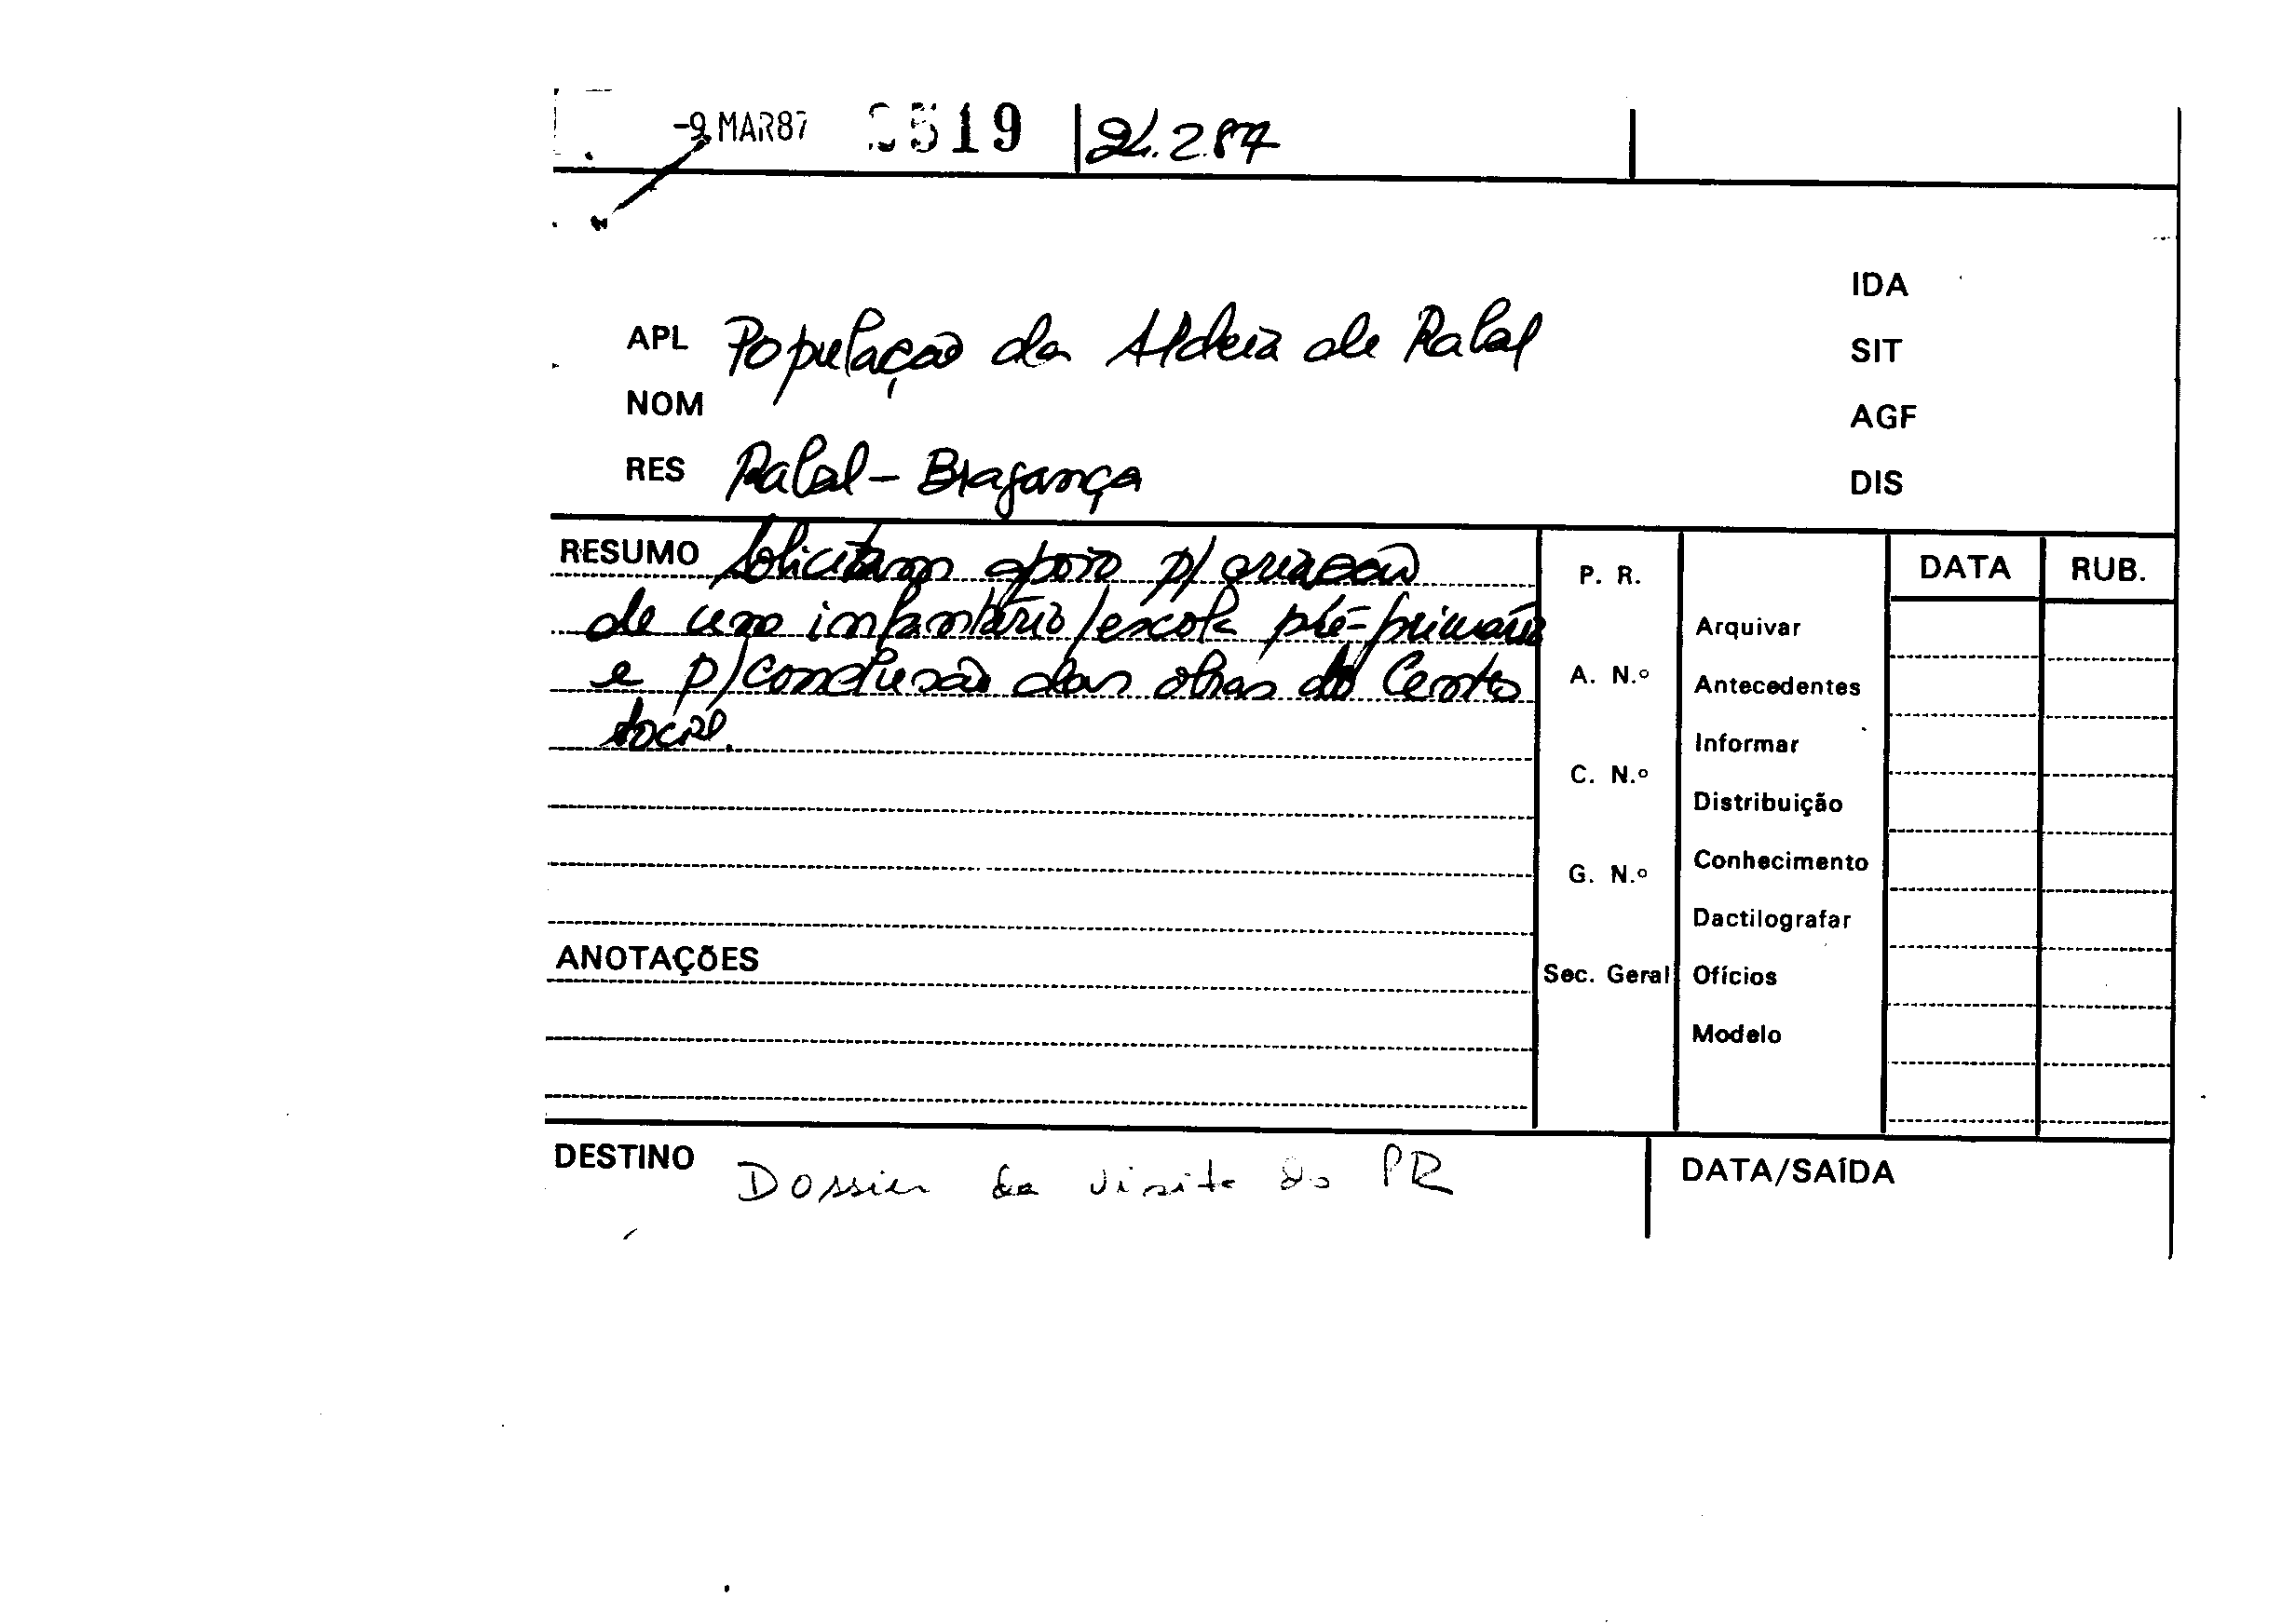 -9 MAR87 519 2.87
IDA
APL População da Aldeia de Rabal
SIT
NOM
AGF
RES Rabal - Bragança
DIS
RESUMO Solicitam apoio p/ criação
de um infantário/escola pré-primária
e p/ conclusão das obras do Centro
Social.
P. R.
A. N.º
C. N.º
G. N.º
Sec. Geral
DATA RUB.
Arquivar
Antecedentes
Informar
Distribuição
Conhecimento
Dactilografar
Ofícios
Modelo
ANOTAÇÕES
DESTINO Dossier da visita do PR
DATA/SAÍDA